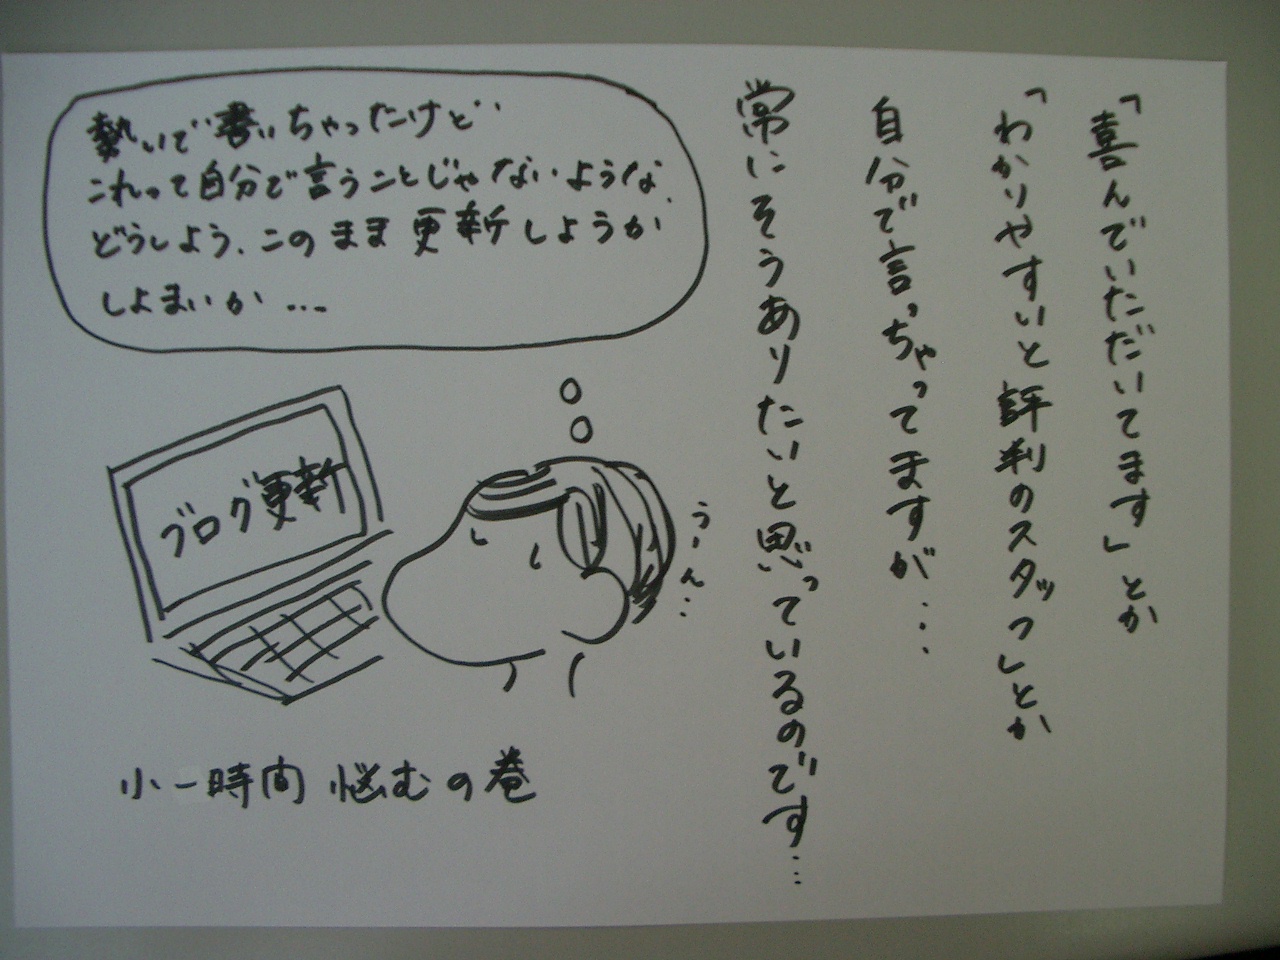 「喜んでいただいてます」とか
「わかりやすいと評判のスタッフ」とか
自分で言っちゃってますが・・・
常にそうありたいと思っているのです・・・
勢いで書いちゃったけど
これって自分で言うことじゃないような、
どうしよう、このまま更新しようか
しよまいか・・・
ブログ更新
うーん・・・
小一時間 悩むの巻